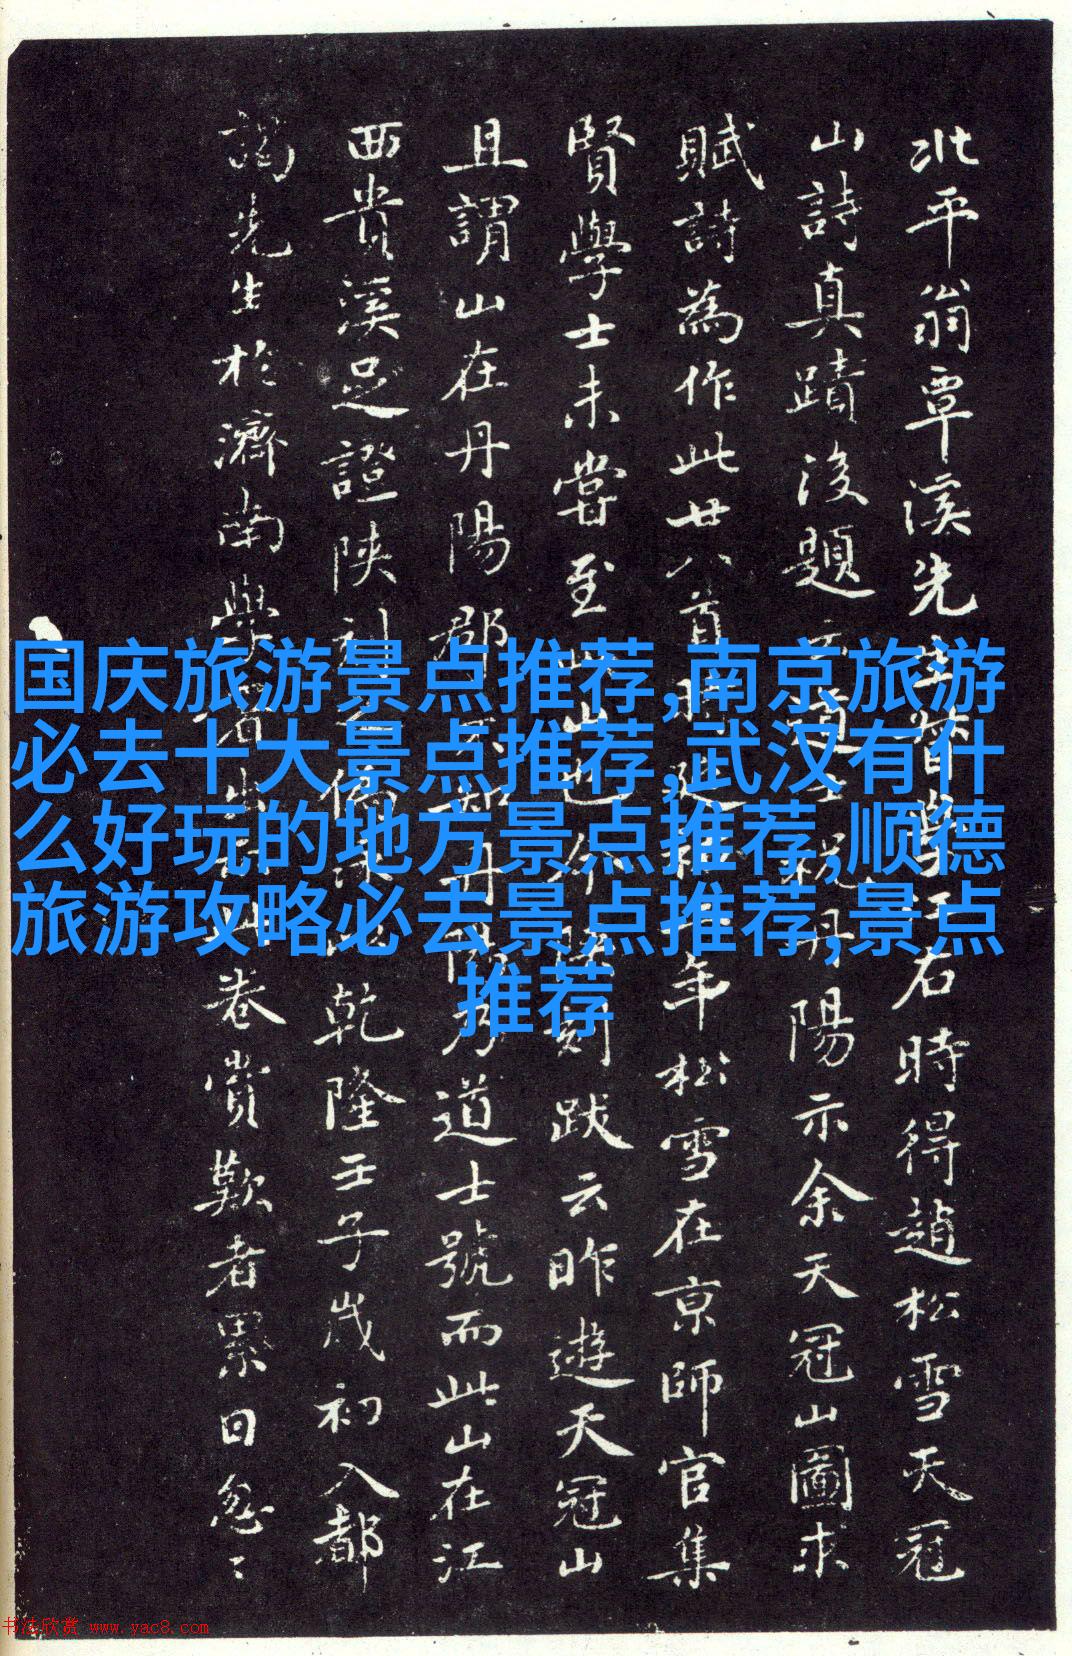 国庆旅游景点推荐,南京旅游
必去十大景点推荐,武汉有什
么好玩的地方景点推荐,顺德
旅游攻略必去景点推荐,景点
推荐
北平翁覃溪先生學江右時得趙松雪天冠
山詩真蹟後題云道士祝丹陽示余天冠山圖求
賦詩為作此廿八首延年松雪在京師官集
賢學士未嘗至此山也刻跋云昨遊天冠山
且謂山在丹陽郡不知丹陽乃道士號而此山在江
西貴溪足證陝刻之偽乾隆壬子歲初入都
謁先生於濟南學署出此卷賞歎者累日忽〻
书法欣赏 www.yac8.com